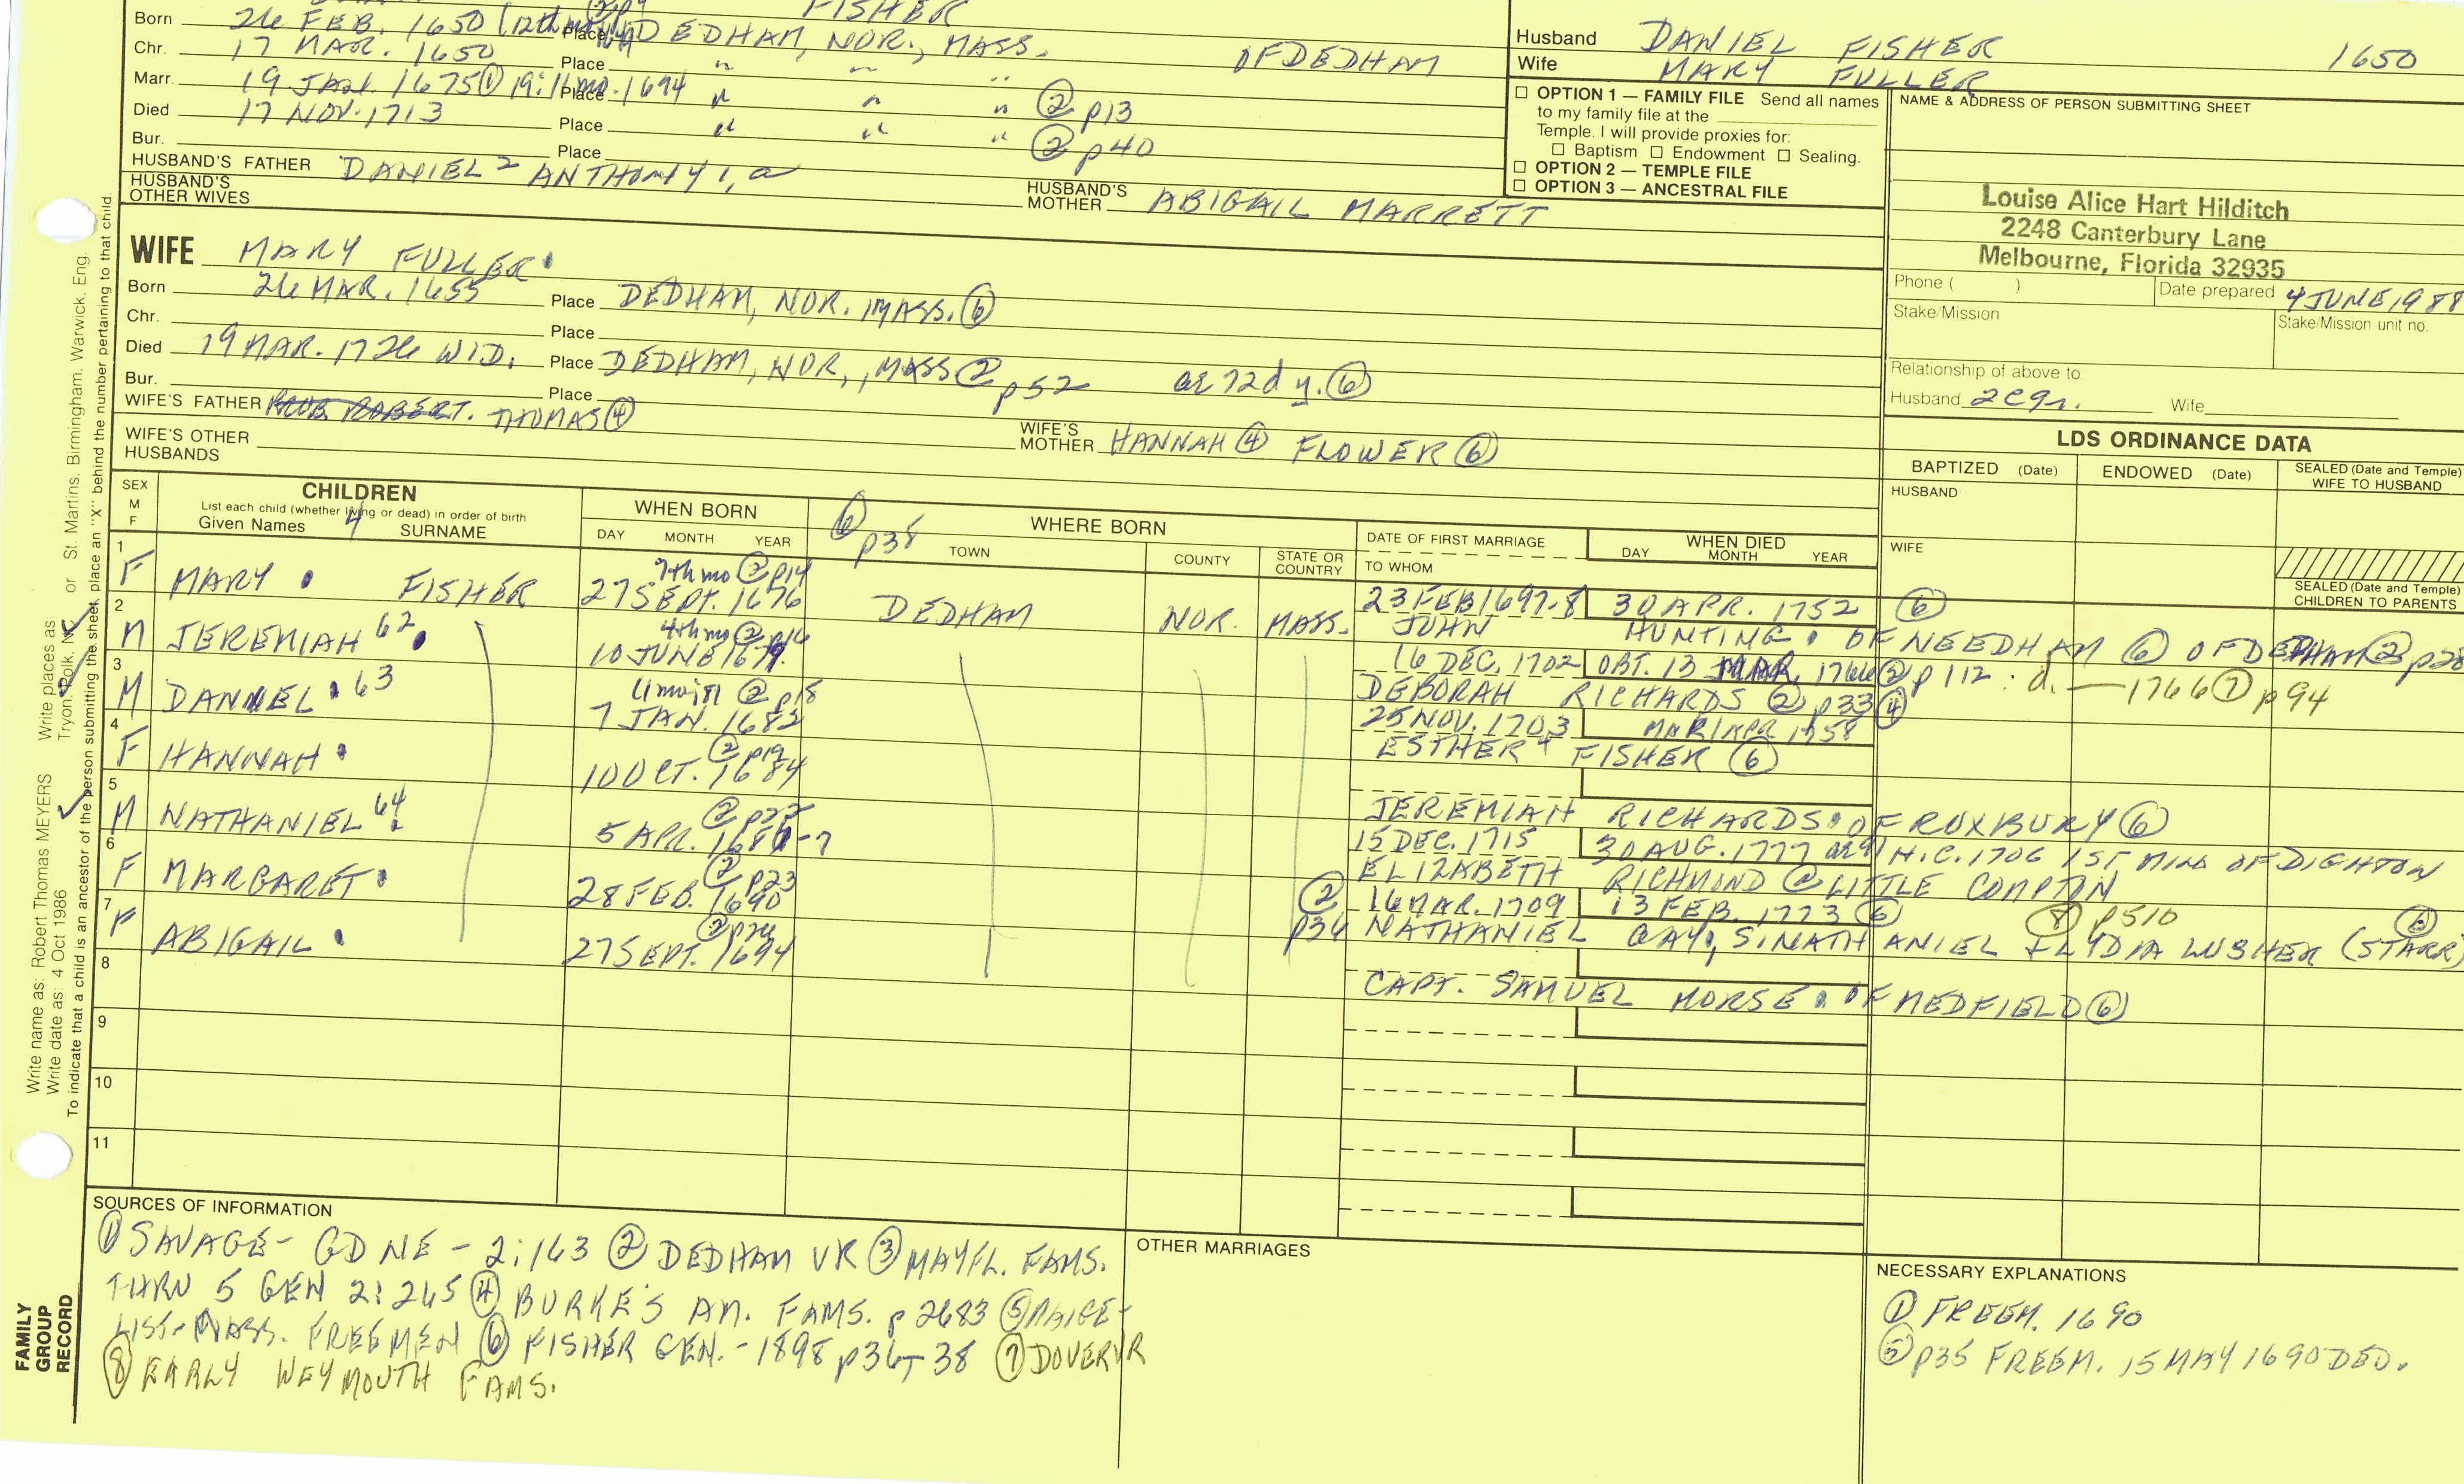 FISHER
Born 26 FEB. 1650 (12th mo Place DEDHAM, NOR., MASS.
Chr. 17 MAR. 1650 Place " " " OF DEDHAM
Marr. 19 JAN. 1675 ① 19:11 mo. 1674 Place " " " ② p13
Died 17 NOV. 1713 Place " " " ② p40
Bur. Place
HUSBAND'S FATHER DANIEL 2 ANTHONY 1, a
HUSBAND'S MOTHER ABIGAIL MARRETT
HUSBAND'S OTHER WIVES
Husband DANIEL FISHER 1650
Wife MARY FULLER
☐ OPTION 1 — FAMILY FILE Send all names
to my family file at the
Temple. I will provide proxies for:
☐ Baptism ☐ Endowment ☐ Sealing.
☐ OPTION 2 — TEMPLE FILE
☐ OPTION 3 — ANCESTRAL FILE
NAME & ADDRESS OF PERSON SUBMITTING SHEET
Louise Alice Hart Hilditch
2248 Canterbury Lane
Melbourne, Florida 32935
Phone ( ) Date prepared 4 JUNE 1988
Stake/Mission Stake/Mission unit no.
Relationship of above to
Husband 2C9r. Wife
WIFE MARY FULLER
Born 26 MAR. 1655 Place DEDHAM, NOR. MASS. ⑥
Chr. Place
Died 19 MAR. 1726 WID. Place DEDHAM, NOR., MASS ② p52 ae 72d y. ⑥
Bur. Place
WIFE'S FATHER PROB ROBERT. THOMAS ④
WIFE'S MOTHER HANNAH ④ FLOWER ⑥
WIFE'S OTHER HUSBANDS
LDS ORDINANCE DATA
BAPTIZED (Date) ENDOWED (Date) SEALED (Date and Temple) WIFE TO HUSBAND
HUSBAND
WIFE
SEALED (Date and Temple) CHILDREN TO PARENTS
SEX M F
CHILDREN
List each child (whether living or dead) in order of birth
Given Names 4 SURNAME
WHEN BORN
DAY MONTH YEAR
⑥ p38 WHERE BORN
TOWN COUNTY STATE OR COUNTRY
DATE OF FIRST MARRIAGE
TO WHOM
WHEN DIED
DAY MONTH YEAR
1 F MARY FISHER 7th mo ② p14 27 SEPT. 1676 DEDHAM NOR. MASS. 23 FEB 1697-8 30 APR. 1752 ⑥
JOHN HUNTING OF NEEDHAM ⑥ OF DEDHAM ② p28
2 M JEREMIAH 62 4th mo ② p16 10 JUNE 1679. 16 DEC. 1702 OBT. 13 MAR. 1766 ② p112: d. — 1766 ⑦ p94
DEBORAH RICHARDS ② p33 ④
3 M DANIEL 63 11 mo; 81 ② p18 7 JAN. 1682 25 NOV. 1703 MAR/APR 1758
ESTHER 4 FISHER ⑥
4 F HANNAH ② p19 10 OCT. 1684
JEREMIAH RICHARDS OF ROXBURY ⑥
5 M NATHANIEL 64 ② p22 5 APR. 1686-7 15 DEC. 1715 30 AUG. 1777 ae 91 H.C. 1706 1ST MIN. OF DIGHTON
ELIZABETH RICHMOND @ LITTLE COMPTON
6 F MARGARET ② p23 28 FEB. 1690 ② p36 16 MAR. 1709 13 FEB. 1773 ⑥ ⑧ p510 ⑥
NATHANIEL GAY, S. NATHANIEL & LYDIA LUSHER (STARR)
7 F ABIGAIL 27 SEPT. 1694
CAPT. SAMUEL MORSE OF MEDFIELD ⑥
8
9
10
11
SOURCES OF INFORMATION
① SAVAGE - GD NE - 2:163 ② DEDHAM VR ③ MAYFL. FAMS.
THRU 5 GEN 2:265 ④ BURKE'S AM. FAMS. p 2683 ⑤ PAIGE -
LIST - MASS. FREEMEN ⑥ FISHER GEN. - 1898 p36-38 ⑦ DOVER VR
⑧ EARLY WEYMOUTH FAMS.
OTHER MARRIAGES
NECESSARY EXPLANATIONS
① FREEM. 1690
⑤ p35 FREEM. 15 MAY 1690 DED.
Write name as: Robert Thomas MEYERS Write places as Tryon, Polk, NC or St. Martins, Birmingham, Warwick, Eng.
Write date as: 4 Oct 1986
To indicate that a child is an ancestor of the person submitting the sheet, place an "X" behind the number pertaining to that child.
FAMILY
GROUP
RECORD